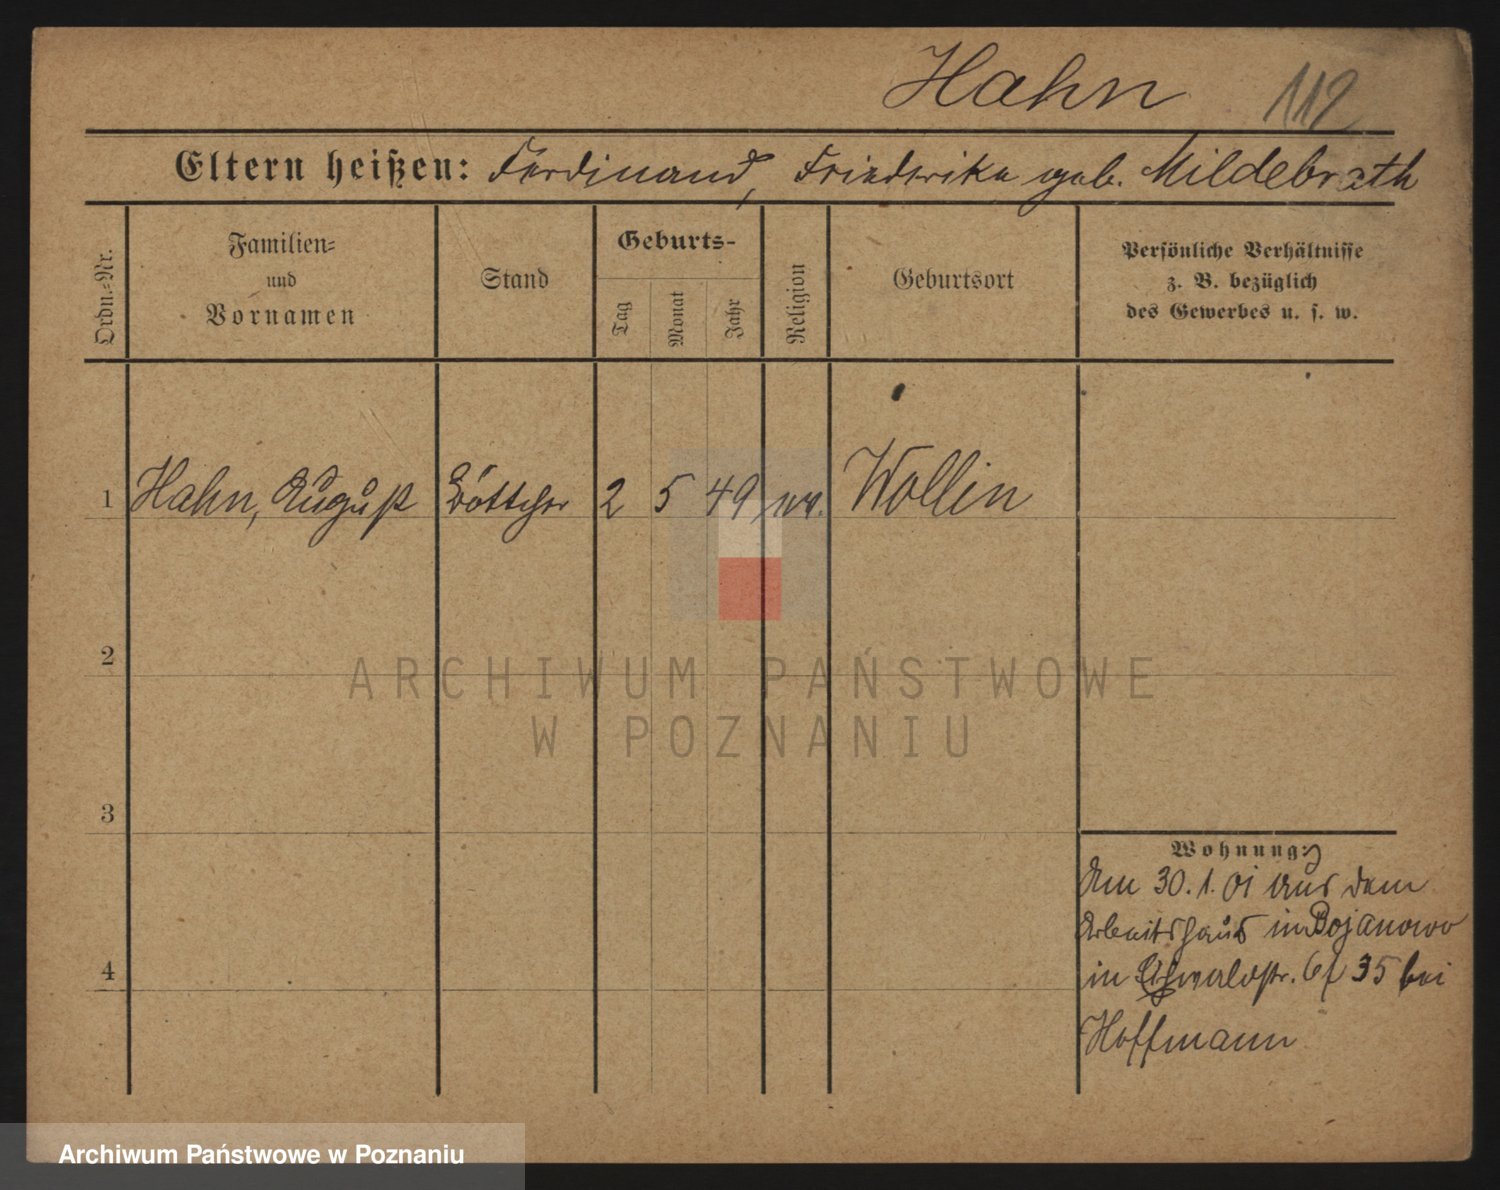 Hahn 119
Eltern heißen: Ferdinand, Friederike geb. Mildebrath
Ordn.-Nr.
Familien-
und
Vornamen
Stand
Geburts-
Tag
Monat
Jahr
Religion
Geburtsort
Persönliche Verhältnisse
z. B. bezüglich
des Gewerbes u. s. w.
1 Hahn, August Böttcher 2 5 49 ev. Wollin
2
3
4
Wohnung:
Am 30. 1. 01 aus dem
Arbeitshaus in Bojanowo
in 35 bei
Hoffmann
ARCHIWUM PAŃSTWOWE
W POZNANIU
Archiwum Państwowe w Poznaniu